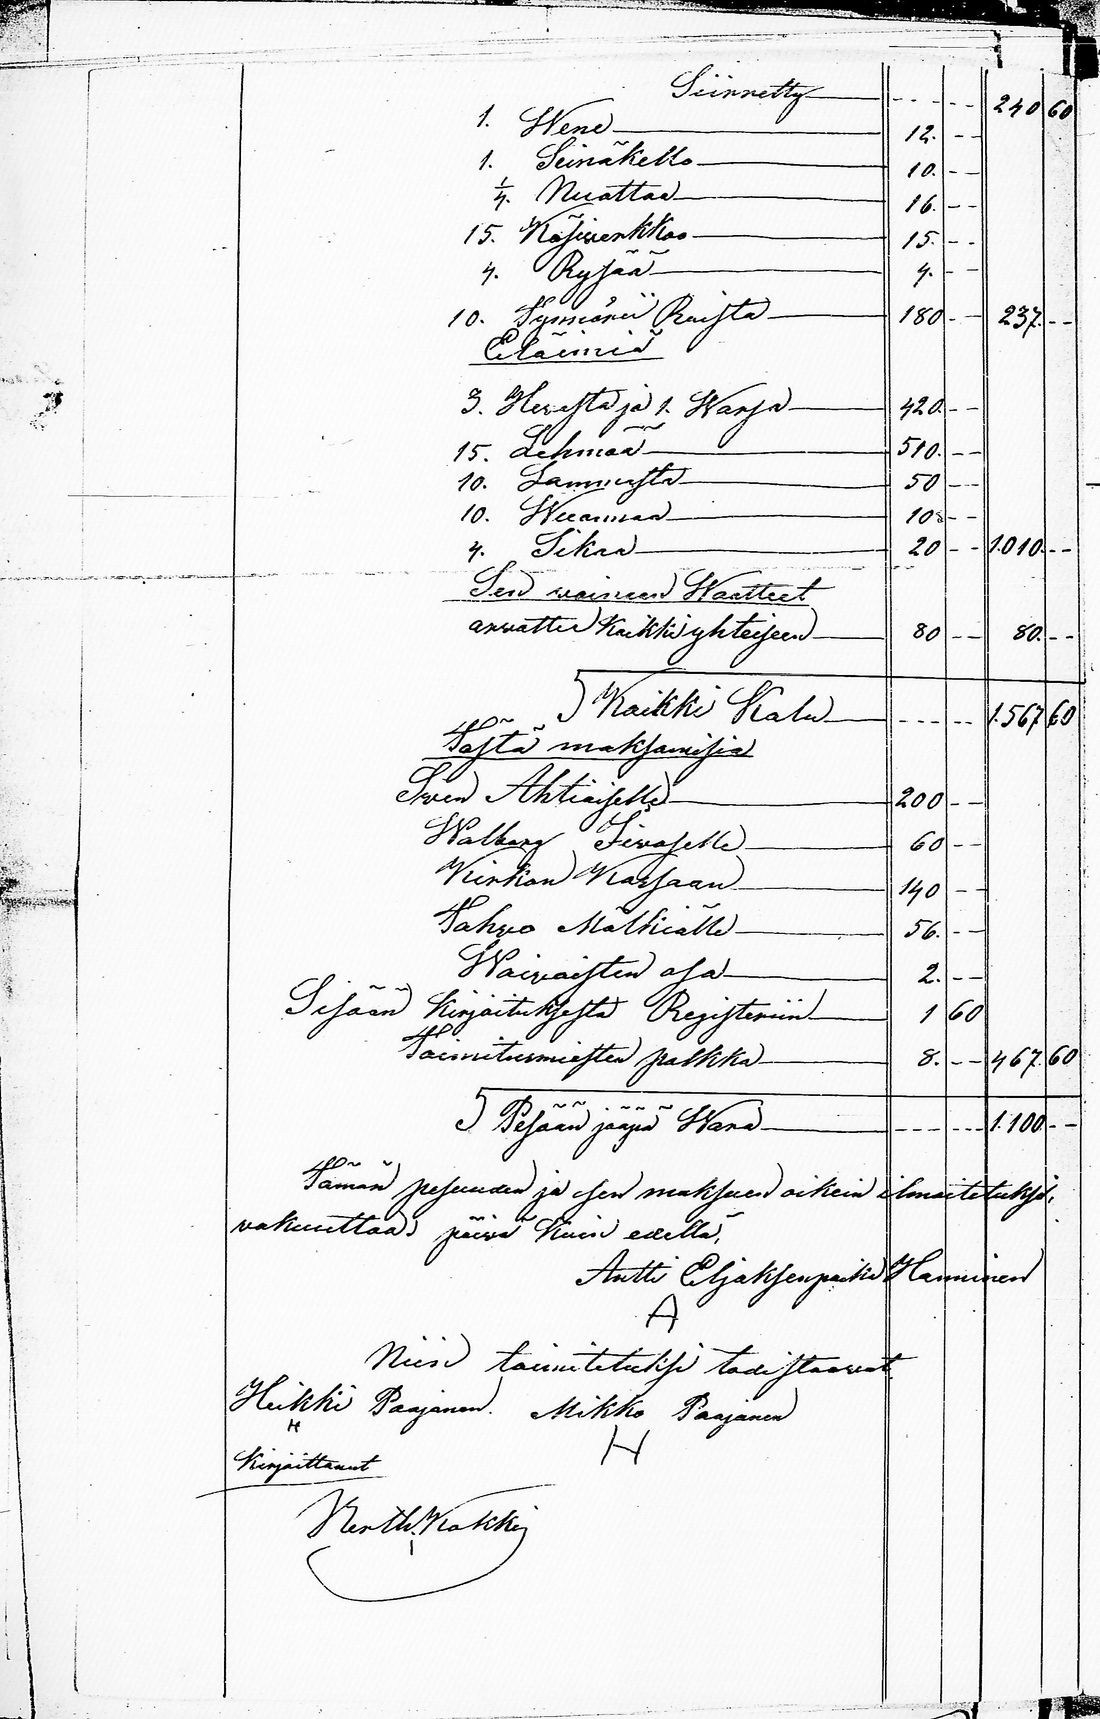 Siirretty - - - - - 240 60
1. Wene 12. - -
1. Seinäkello 10. - -
1/4. Nuottaa 16. - -
15. Käsiverkkoo 15. - -
4. Rysää 4. - -
10. Tynnöriï Ruista 180 - - 237. - -
Eläimiä
3. Hevosta ja 1. Warsa 420. - -
15. Lehmää 510. - -
10. Lammasta 50 - -
10. Wuonnaa 10 - -
4. Sikaa 20 - - 1.010. - -
Sen Waatteet
arvattu Kaikki yhteiseen 80 - - 80. - -
Kaikki Kalu - - - - - 1.567 60
Tästä maksamisia
Sven Ahtiaiselle 200 - -
Walborg 60 - -
Kirkon Kassaan 140 - -
Tahvo Mälkiälle 56. - -
Waivaisten osa 2. - -
Sisään kirjoituksesta Registeriin 1 60
Toimitusmiesten palkka 8. - - 467. 60
Pesään jääpä Wara - - - - - 1.100 - -
Tämän pesuuden ja sen maksuen oikein ilmoitetuksi,
vakuuttaa päivä Kuin edellä,
Antti Eljaksenpoika Hanninen
A
Niin toimitetuksi todistaavat
Heikki Paajanen. Mikko Paajanen
H H
Kirjoittanut
Kokki